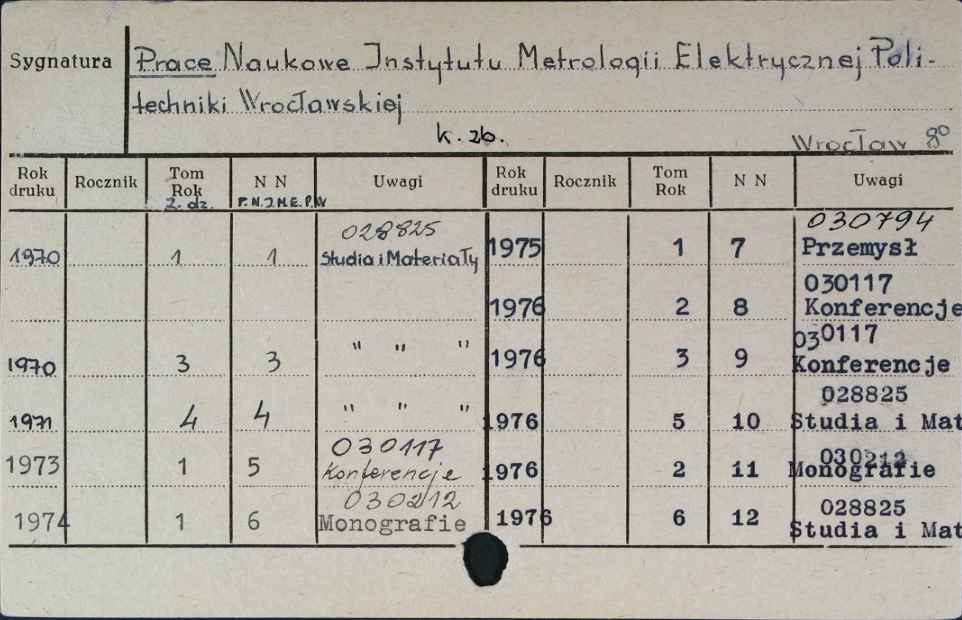 Sygnatura
Prace Naukowe Instytutu Metrologii Elektrycznej Poli-
techniki Wrocławskiej
k. zb.
Wrocław 8°
Rok druku Rocznik Tom Rok N N Uwagi Rok druku Rocznik Tom Rok N N Uwagi
2. dz. P.N.I.M.E.P.W
028825 030794
1970 1 1 Studia i Materiały 1975 1 7 Przemysł
030117
1976 2 8 Konferencje
030117
1970 3 3 " " " 1976 3 9 Konferencje
028825
1971 4 4 " " " 1976 5 10 Studia i Mat
030117 030212
1973 1 5 Konferencje 1976 2 11 Monografie
030212 028825
1974 1 6 Monografie 1976 6 12 Studia i Mat